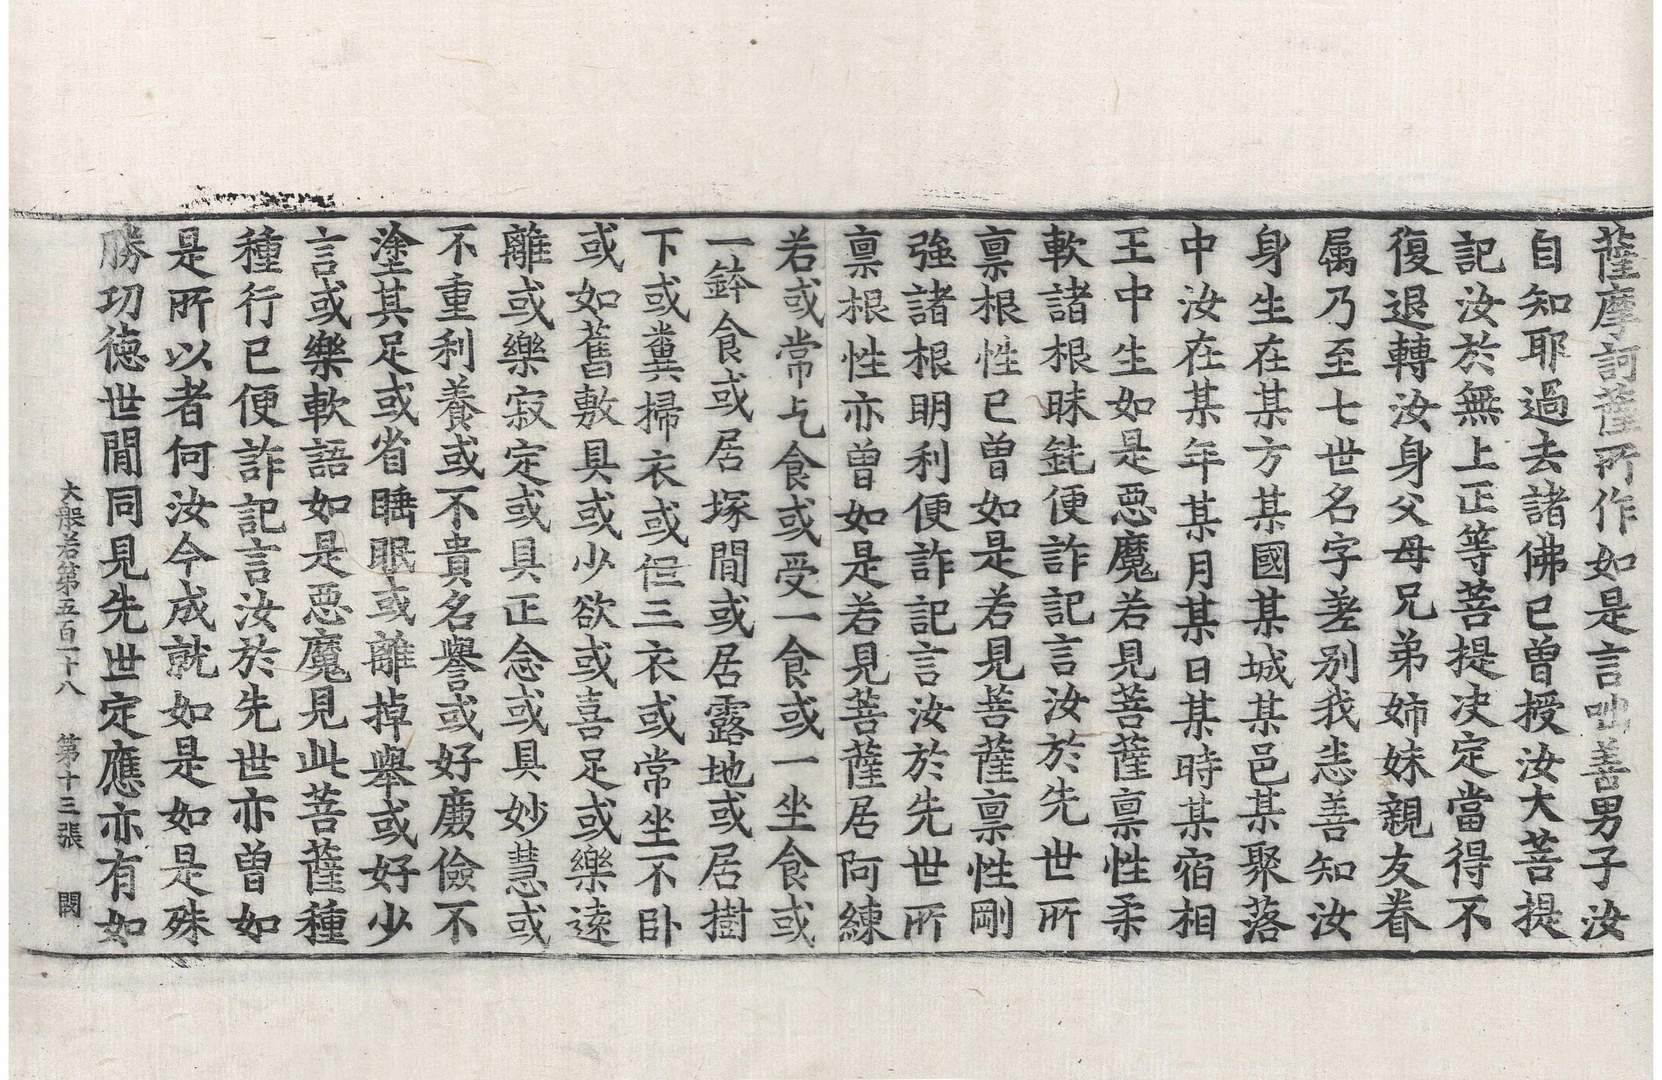 薩摩訶薩所作如是言咄善男子汝
自知耶過去諸佛已曾授汝大菩提
記汝於無上正等菩提決定當得不
復退轉汝身父母兄弟姉妹親友眷
属乃至七世名字差别我悉善知汝
身生在某方某國某城某邑某聚落
中汝在某年某月某日某時某宿相
王中生如是惡魔若見菩薩禀性柔
軟諸根昧鈍便詐記言汝於先世所
禀根性已曾如是若見菩薩禀性剛
強諸根明利便詐記言汝於先世所
禀根性亦曾如是若見菩薩居阿練
若或常乞食或受一食或一坐食或
一鉢食或居塚間或居露地或居樹
下或糞掃衣或但三衣或常坐不卧
或如舊敷具或少欲或喜足或樂遠
離或樂寂定或具正念或具妙慧或
不重利養或不貴名譽或好廉儉不
塗其足或省睡眠或離掉舉或好少
言或樂軟語如是惡魔見此菩薩種
種行已便詐記言汝於先世亦曾如
是所以者何汝今成就如是如是殊
勝功德世間同見先世定應亦有如
大般若第五百一十八 第十三張 閟